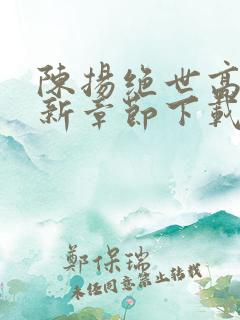 陳揚絕世高
新章節下載
鄭保瑞
未经同意禁止转载